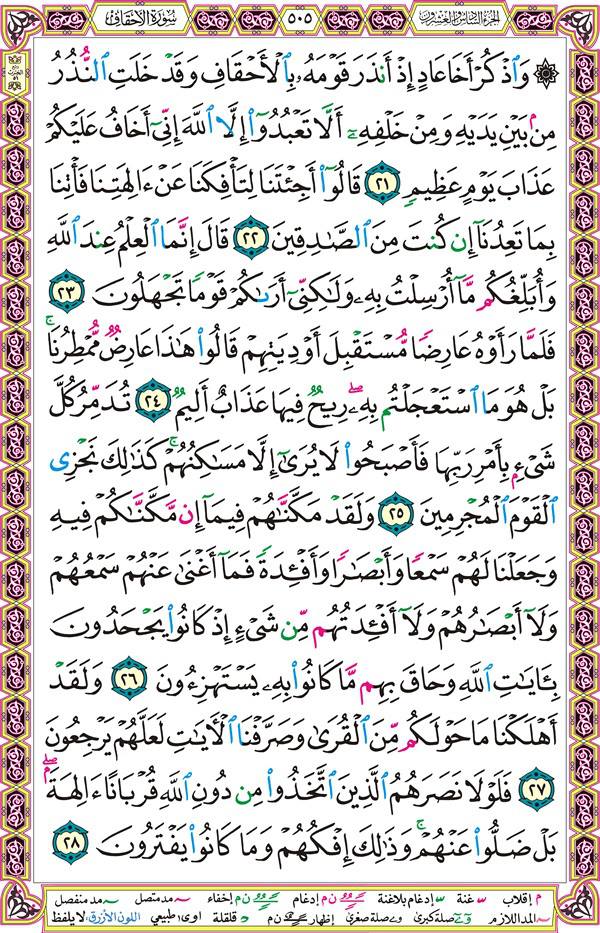 الجزء السادس والعشرون ٥٠٥ سورة الأحقاف
۞ وَٱذْكُرْ أَخَا عَادٍ إِذْ أَنذَرَ قَوْمَهُۥ بِٱلْأَحْقَافِ وَقَدْ خَلَتِ ٱلنُّذُرُ
مِنۢ بَيْنِ يَدَيْهِ وَمِنْ خَلْفِهِۦٓ أَلَّا تَعْبُدُوٓا۟ إِلَّا ٱللَّهَ إِنِّىٓ أَخَافُ عَلَيْكُمْ
عَذَابَ يَوْمٍ عَظِيمٍ ٢١ قَالُوٓا۟ أَجِئْتَنَا لِتَأْفِكَنَا عَنْ ءَالِهَتِنَا فَأْتِنَا
بِمَا تَعِدُنَآ إِن كُنتَ مِنَ ٱلصَّـٰدِقِينَ ٢٢ قَالَ إِنَّمَا ٱلْعِلْمُ عِندَ ٱللَّهِ
وَأُبَلِّغُكُم مَّآ أُرْسِلْتُ بِهِۦ وَلَـٰكِنِّىٓ أَرَىٰكُمْ قَوْمًا تَجْهَلُونَ ٢٣
فَلَمَّا رَأَوْهُ عَارِضًا مُّسْتَقْبِلَ أَوْدِيَتِهِمْ قَالُوا۟ هَـٰذَا عَارِضٌ مُّمْطِرُنَا ۚ
بَلْ هُوَ مَا ٱسْتَعْجَلْتُم بِهِۦ ۖ رِيحٌ فِيهَا عَذَابٌ أَلِيمٌ ٢٤ تُدَمِّرُ كُلَّ
شَىْءٍۭ بِأَمْرِ رَبِّهَا فَأَصْبَحُوا۟ لَا يُرَىٰٓ إِلَّا مَسَـٰكِنُهُمْ ۚ كَذَٰلِكَ نَجْزِى
ٱلْقَوْمَ ٱلْمُجْرِمِينَ ٢٥ وَلَقَدْ مَكَّنَّـٰهُمْ فِيمَآ إِن مَّكَّنَّـٰكُمْ فِيهِ
وَجَعَلْنَا لَهُمْ سَمْعًا وَأَبْصَـٰرًا وَأَفْـِٔدَةً فَمَآ أَغْنَىٰ عَنْهُمْ سَمْعُهُمْ
وَلَآ أَبْصَـٰرُهُمْ وَلَآ أَفْـِٔدَتُهُم مِّن شَىْءٍ إِذْ كَانُوا۟ يَجْحَدُونَ
بِـَٔايَـٰتِ ٱللَّهِ وَحَاقَ بِهِم مَّا كَانُوا۟ بِهِۦ يَسْتَهْزِءُونَ ٢٦ وَلَقَدْ
أَهْلَكْنَا مَا حَوْلَكُم مِّنَ ٱلْقُرَىٰ وَصَرَّفْنَا ٱلْـَٔايَـٰتِ لَعَلَّهُمْ يَرْجِعُونَ
٢٧ فَلَوْلَا نَصَرَهُمُ ٱلَّذِينَ ٱتَّخَذُوا۟ مِن دُونِ ٱللَّهِ قُرْبَانًا ءَالِهَةًۢ ۖ
بَلْ ضَلُّوا۟ عَنْهُمْ ۚ وَذَٰلِكَ إِفْكُهُمْ وَمَا كَانُوا۟ يَفْتَرُونَ ٢٨
م إقلاب غنة إدغام بلاغنة ن م إدغام ن م إخفاء مد متصل مد منفصل
المد اللازم صلة كبرى صلة صغرى إظهار ن م قلقلة اوى طبيعي اللون الأزرق: لا يلفظ